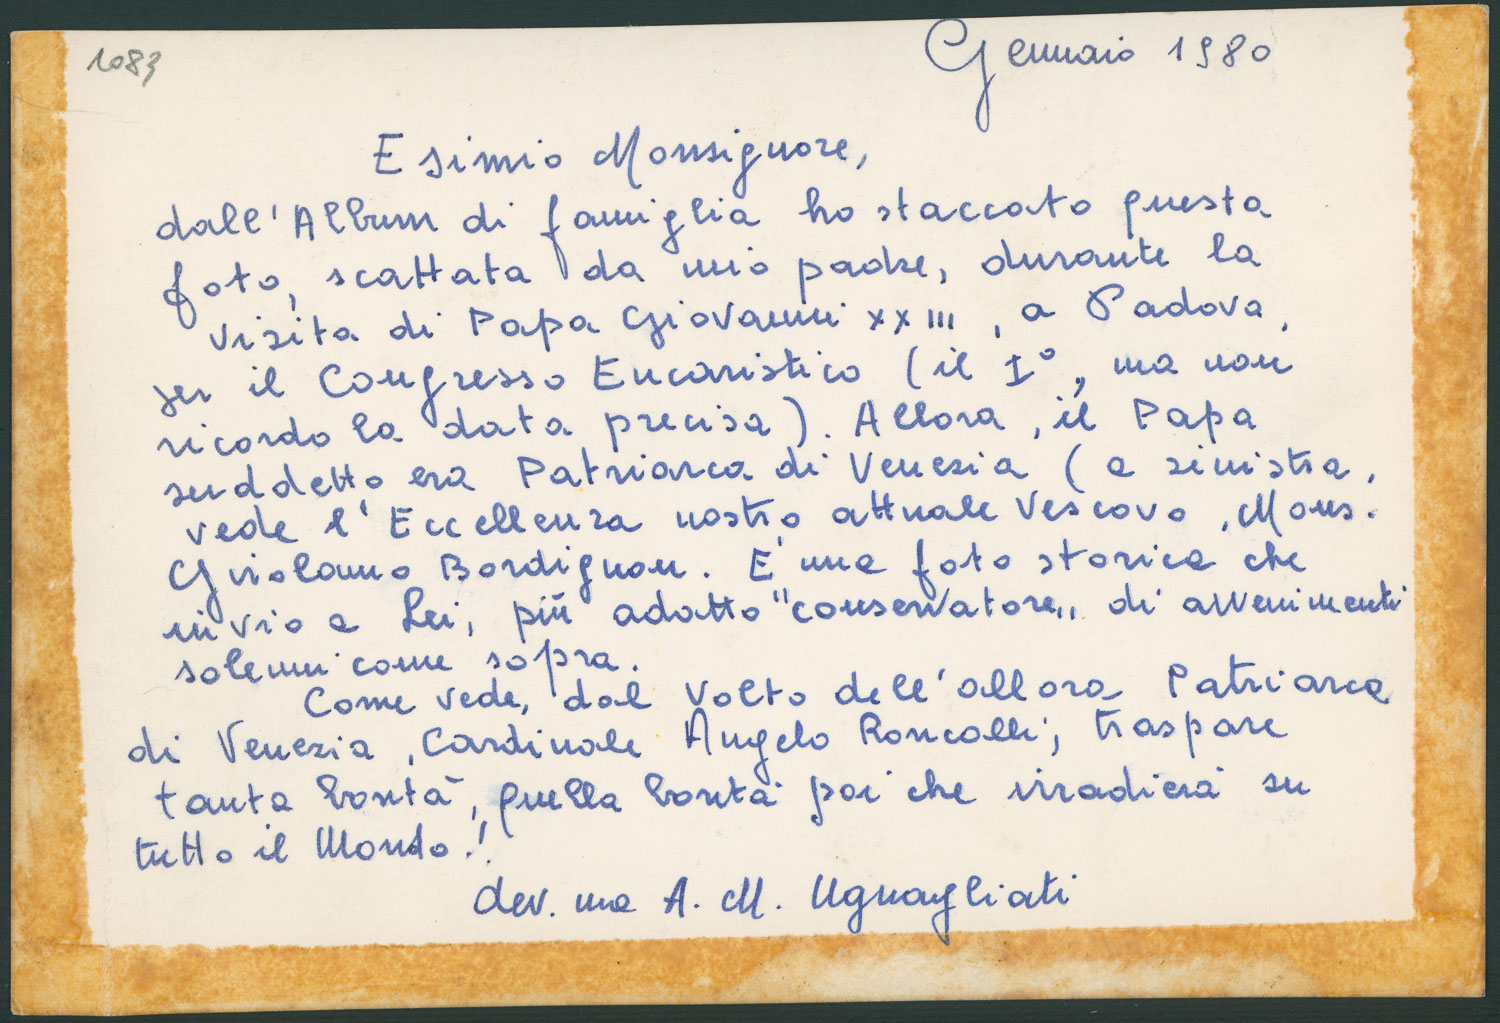 1083
Gennaio 1980
Esimio Monsignore,
dall'Album di famiglia ho staccato questa
foto, scattata da mio padre, durante la
visita di Papa Giovanni XXIII, a Padova,
per il Congresso Eucaristico (il 1°, ma non
ricordo la data precisa). Allora, il Papa
suddetto era Patriarca di Venezia (a sinistra,
vede l'Eccellenza nostro attuale Vescovo, Mons.
Girolamo Bordignon. E' una foto storica che
invio a Lei, più adatto "conservatore" di avvenimenti
solenni come sopra.
Come vede, dal volto dell'allora Patriarca
di Venezia, Cardinale Angelo Roncalli, traspare
tanta bontà, quella bontà poi che irradierà su
tutto il Mondo!
dev.ma A. M. Uguagliati